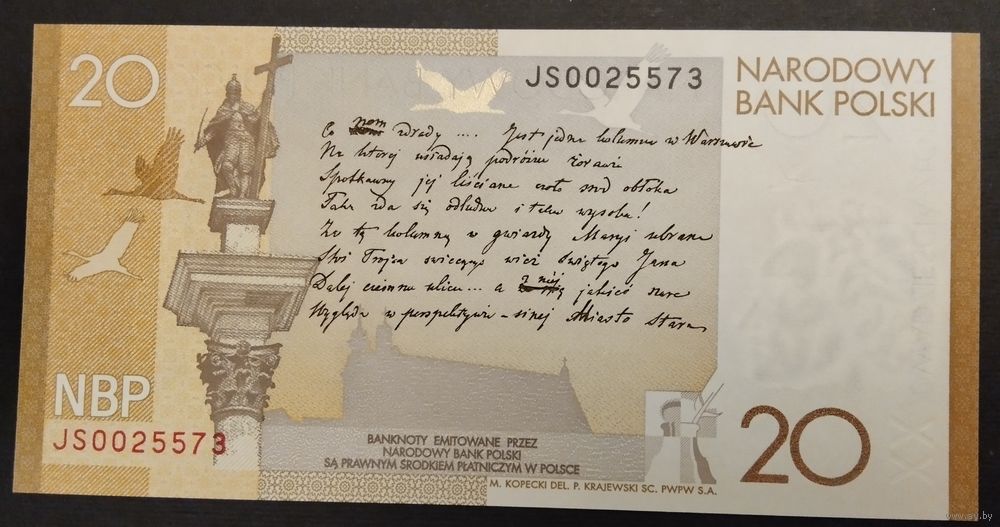 20
JS0025573
NARODOWY
BANK POLSKI
Co nam zdrady .... Jest jedna kolumna w Warszawie
Na ktorej usiadają podróżne żorawie
Spotkawszy jej liściane czoło środ obłoka
Taka zda się odludna i taka wysoka!
Za tą kolumną w gwiazdy Maryi ubrana
Stoi Trojca swiecących wież Świętego Jana
Dalej ciemna ulica... a z niej jakieś szare
Wygląda w perspektywie - sinej Miasto Stare
NBP
JS0025573
BANKNOTY EMITOWANE PRZEZ
NARODOWY BANK POLSKI
SĄ PRAWNYM ŚRODKIEM PŁATNICZYM W POLSCE
20
M. KOPECKI DEL. P. KRAJEWSKI SC. PWPW S.A.
www.ay.by